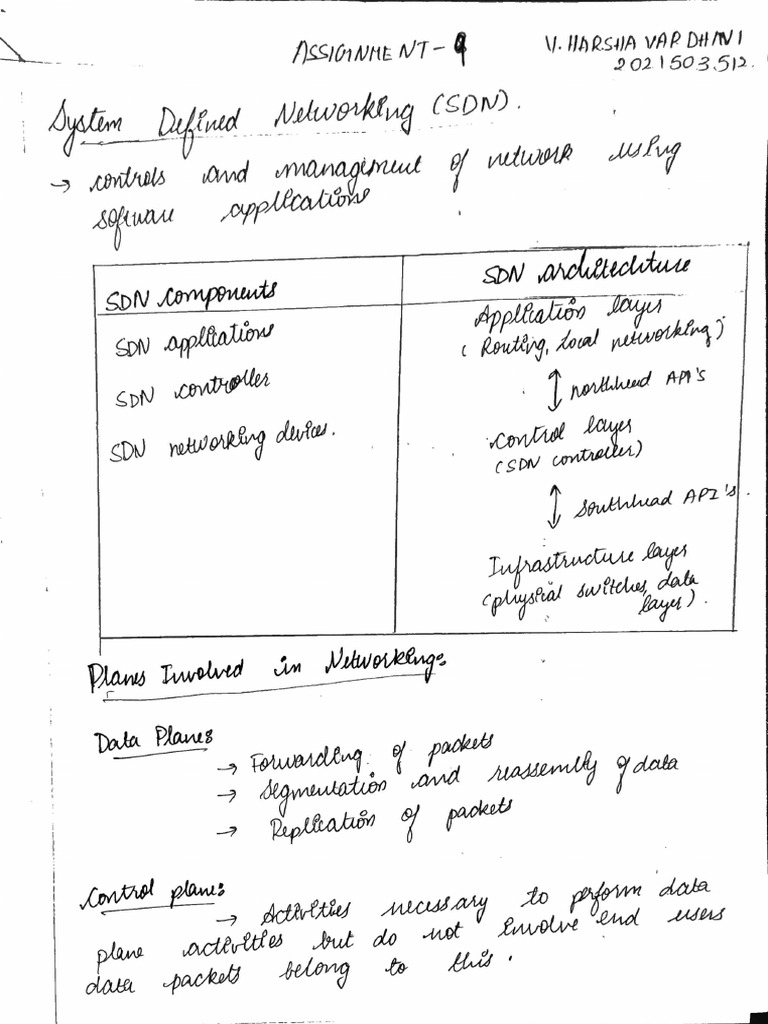 ASSIGNMENT-9
V. HARSHA VARDHINI
2021503512.
System Defined Networking (SDN).
→ controls and management of network using
software applications
SDN components
SDN applications
SDN controller
SDN networking devices.
SDN architechture
Application layer
(Routing, Local networking)
↕ northhead API's
Control layer
(SDN controller)
↕ Southhead API's.
Infrastructure layer
(physical switches, data
layer).
Planes Involved in Networking:
Data Plane:
→ Forwarding of packets
→ Segmentation and reassembly of data
→ Replication of packets
Control plane:
→ Activities necessary to perform data
plane activities but do not involve end users
data packets belong to this.